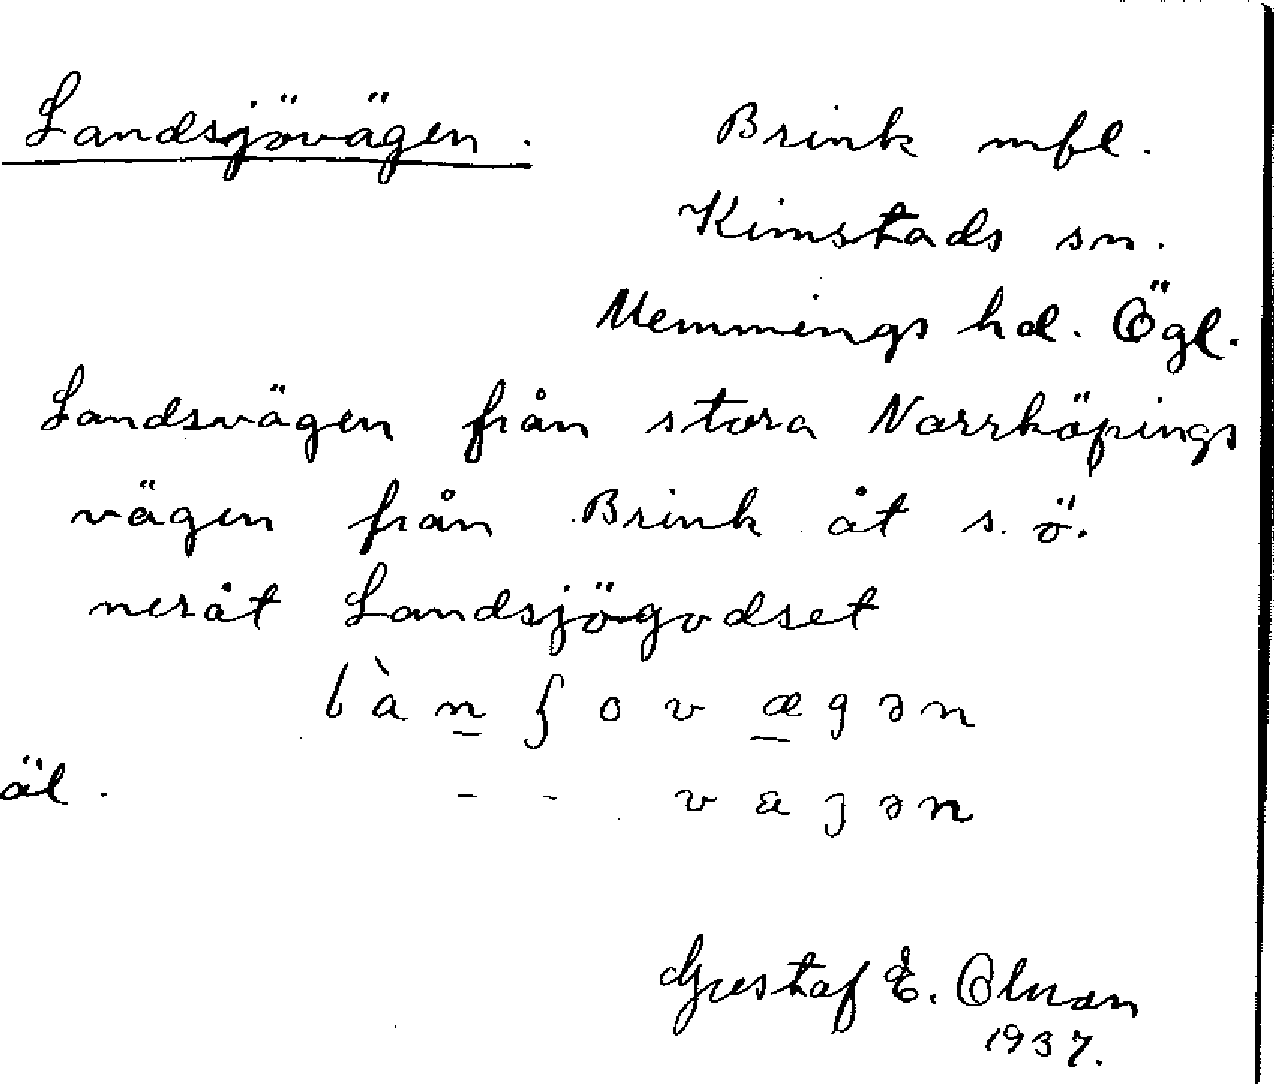 Landsjövägen. Brink mfl.
Kimstads sn.
Memmings hd. Ögl.
Landsvägen från stora Norrköpings
vägen från Brink åt s.ö.
neråt Landsjögodset
làn ʃovægən
äl. - - vagən
Gustaf E.
1937.